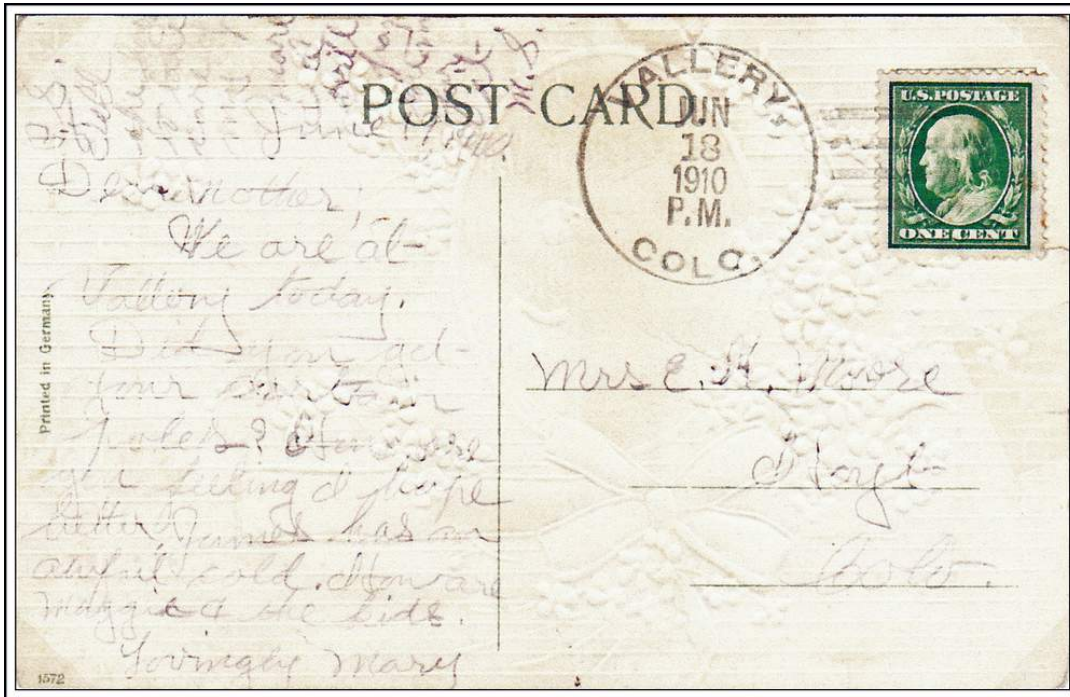 POST CARD.
VALLERY,
JUN
18
1910
P.M.
COLO.
U.S. POSTAGE
ONE CENT
P.S.
Tell
M.S.
June 1910.
Dear Mother,
We are at
Vallery today.
Did you get
your curtain
poles? How are
you feeling I hope
better, James has an
awful cold. How are
Maggie & the kids.
Lovingly Mary
Mrs E. H. Moore
Hoyt
Colo.
Printed in Germany
1572